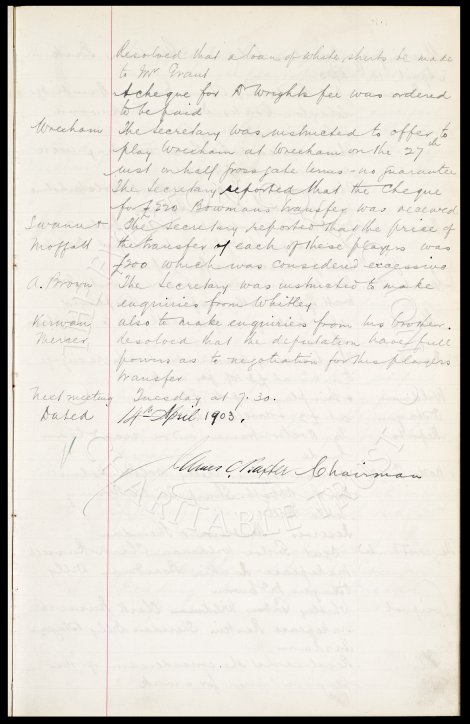 Resolved that a loan of white shirts be made
to Mr Grant
A cheque for Dr Wrights fee was ordered
to be paid
Wrexham The Secretary was instructed to offer to
play Wrexham at Wrexham on the 27th
inst on half gross gate terms - no guarantee
The Secretary reported that the Cheque
for £320 Bowmans transfer was received
The Secretary reported that the price of
Moffatt the transfer of each of these players was
£200 which was considered excessive
A. Brown The Secretary was instructed to make
enquiries from Whitley
Kirwan also to make enquiries from his brother.
Mercer resolved that the deputation have full
powers as to negotiation for this players
transfer
Next meeting Tuesday at 7.30.
Dated 14th April 1903.
James C. Baxter Chairman
CHARITABLE